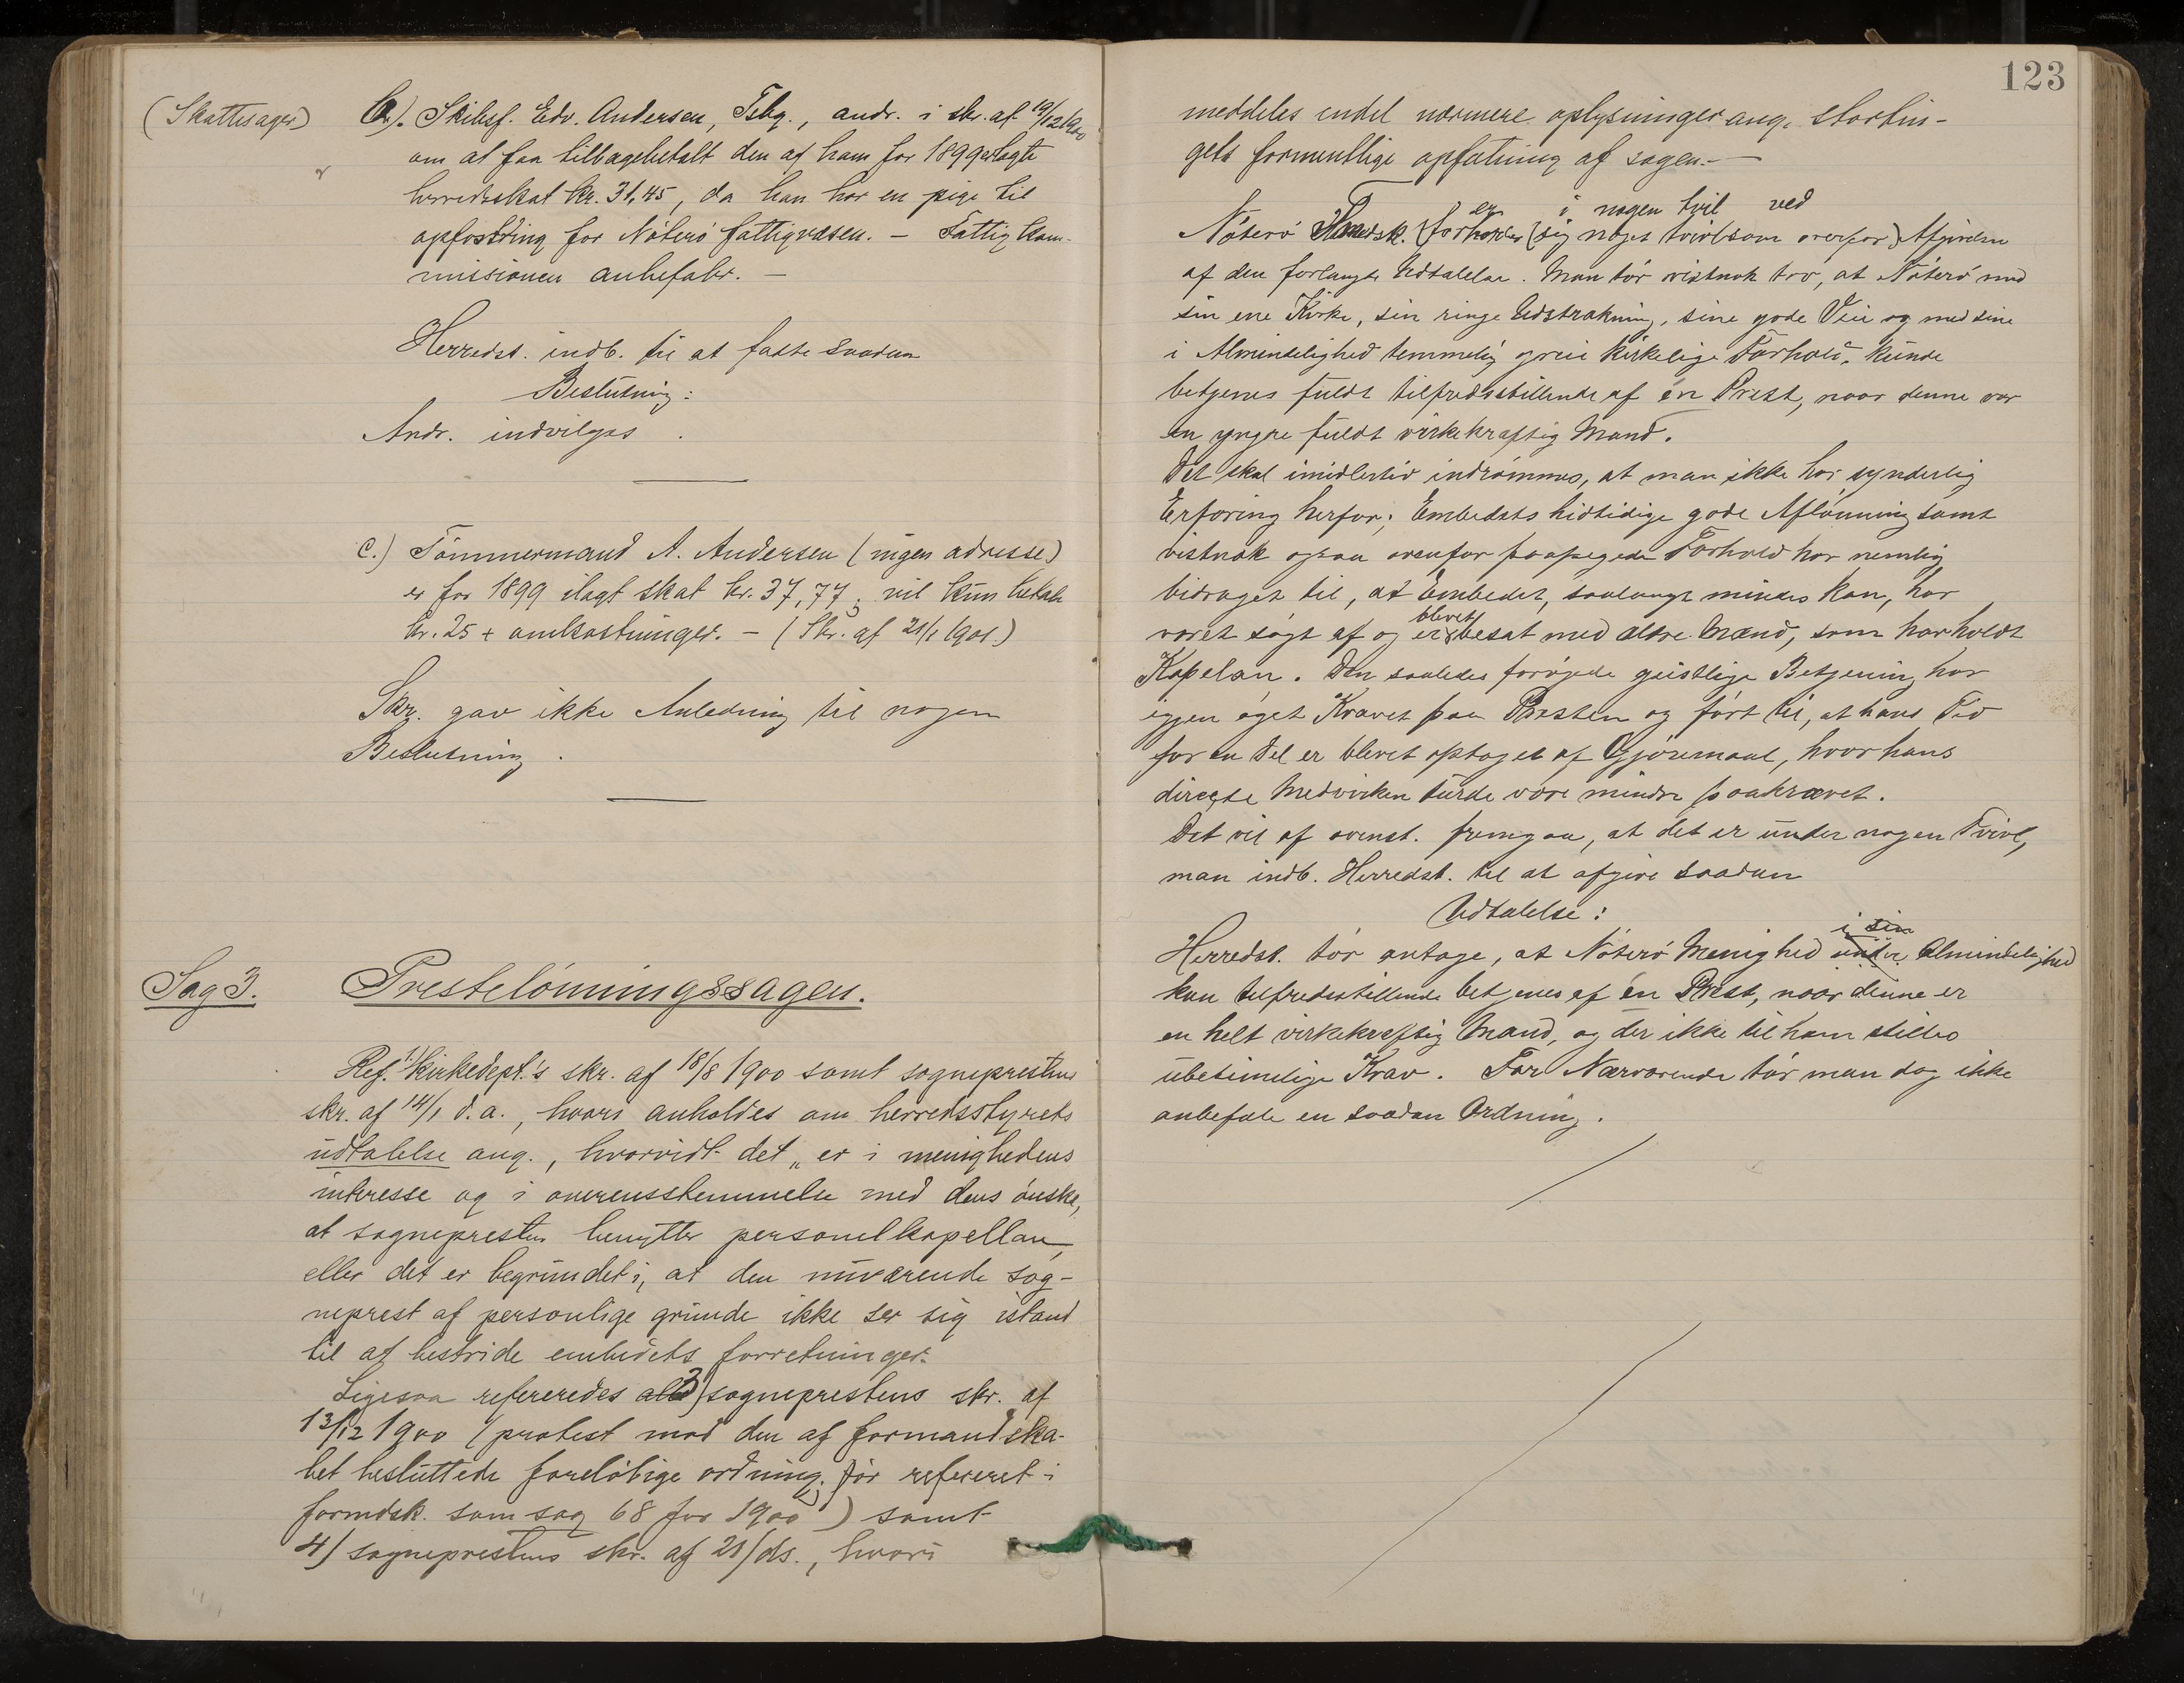 (Skattesager)
b). Skibsf. Edv. Andersen, Tsbg., andr. i skr. af 19/12 1900
om at faa tilbagebetalt den af ham for 1899 erlagte
herredsskat kr. 31,45, da han har en pige til
opfostring for Nøterø fattigvæsen. – Fattigkom-
missionen anbefaler. –
Herredst. indb. til at fatte saadan
Beslutning:
Andr. indvilges.
c.) Tømmermand A. Andersen (ingen adresse)
er for 1899 ilagt skat kr. 37,77; vil kun betale
kr. 25 + omkostninger. – (Skr. af 21/1 1901.)
Skr. gav ikke Anledning til nogen
Beslutning.
Sag 3. Prestelønningssagen.
Ref. 1) Kirkedept.'s skr. af 18/8 1900 samt sogneprestens
skr. af 14/1 d.a., hvori anholdes om herredsstyrets
udtalelse ang., hvorvidt det „er i menighedens
interesse og i overensstemmelse med dens ønske,
at sognepresten benytter personelkapellan,
eller det er begrundet i, at den nuværende sog-
neprest af personlige grunde ikke ser sig istand
til at bestride embedets forretninger.
Ligesaa refereredes 3) sogneprestens skr. af
13/12 1900 (protest mod den af formandska-
bet besluttede foreløbige ordning; før refereret i
formdsk. som sag 68 for 1900) samt
4) sogneprestens skr. af 21/ds., hvori
123
meddeles endel nærmere oplysninger ang. stortin-
gets formentlige opfatning af sagen. –
er i nogen tvil ved
Nøterø Formdsk. (forholder (sig noget tvivlsom overfor) Afgivelsen
af den forlangte Udtalelse. Man tør vistnok tro, at Nøterø med
sin ene Kirke, sin ringe Udstrækning, sine gode Veie og med sine
i Almindelighed temmelig greie kirkelige Forhold, kunde
betjenes fuldt tilfredsstillende af én Prest, naar denne var
en yngre fuldt virkekraftig Mand.
Det skal imidlertid indrømmes, at man ikke har synderlig
Erfaring herfor; Embedets hidtidige gode Aflønning samt
vistnok ogsaa ovenfor paapegede Forhold har nemlig
bidraget til, at Embedet, saalangt mindes kan, har
blevet
været søgt af og er besat med ældre Mænd, som har holdt
Kapelan. Den saaledes forøgede geistlige Betjening har
igjen øget Kravet paa Presten og ført til, at hans Tid
for en Del er blevet optaget af Gjøremaal, hvor hans
directe Medvirken turde være mindre paakrævet.
Det vil af ovenst. fremgaa, at det er under nogen Tvivl,
man indb. Herredst. til at afgive saadan
Udtalelse:
i sin
Herredst. tør antage, at Nøterø Menighed under Almindelighed
kan tilfredsstillende betjenes af én Prest, naar denne er
en helt virkekraftig Mand, og der ikke til ham stilles
ubesindige Krav. For Nærværende tør man dog ikke
anbefale en saadan Ordning.